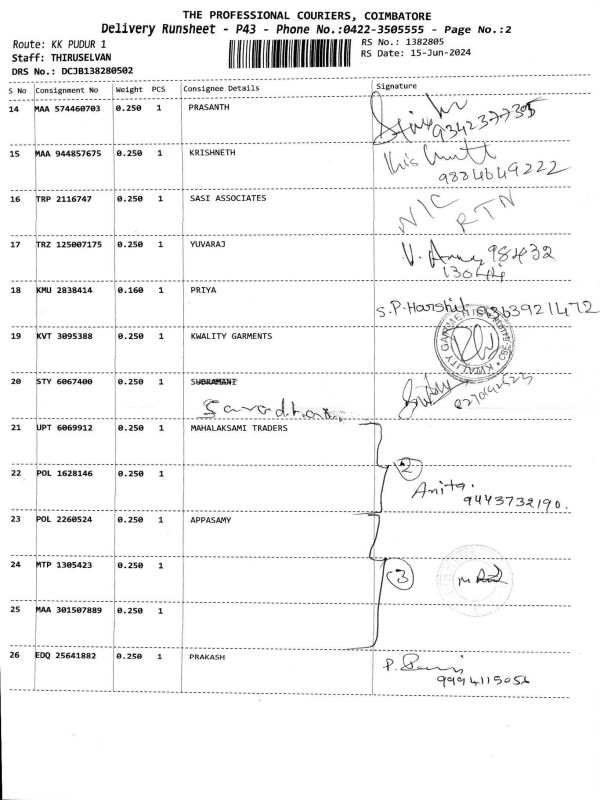 THE PROFESSIONAL COURIERS, COIMBATORE
Delivery Runsheet - P43 - Phone No.:0422-3505555 - Page No.:2
Route: KK PUDUR 1
RS No.: 1382805
Staff: THIRUSELVAN
RS Date: 15-Jun-2024
DRS No.: DCJB138280502
S No Consignment No Weight PCS Consignee Details Signature
14 MAA 574460703 0.250 1 PRASANTH
9342377335
15 MAA 944857675 0.250 1 KRISHNETH
9884649222
16 TRP 2116747 0.250 1 SASI ASSOCIATES N/C
RTN
17 TRZ 125007175 0.250 1 YUVARAJ 98432
13044
18 KMU 2838414 0.160 1 PRIYA
S.P.Harshit 9363921472
19 KVT 3095388 0.250 1 KWALITY GARMENTS KWALITY GARMENTS
20 STY 6067400 0.250 1 SUBRAMANI
21 UPT 6069912 0.250 1 MAHALAKSAMI TRADERS
2
22 POL 1628146 0.250 1 Anita.
9443732190.
23 POL 2260524 0.250 1 APPASAMY
24 MTP 1305423 0.250 1
3
25 MAA 301507889 0.250 1
26 EDQ 25641882 0.250 1 PRAKASH P.
9994115056